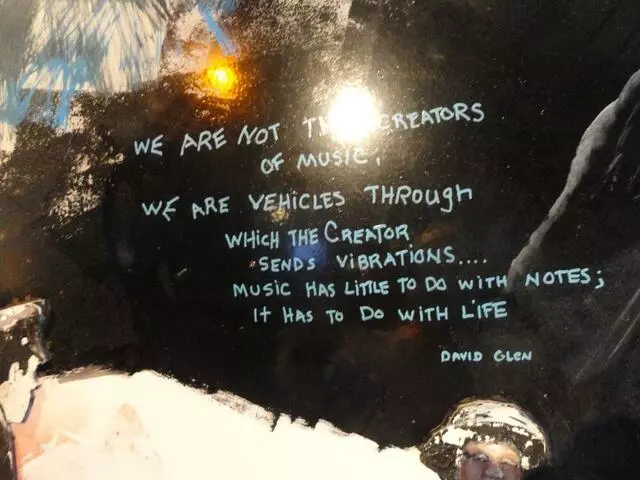 WE ARE NOT THE CREATORS
OF MUSIC,
WE ARE VEHICLES THROUGH
WHICH THE CREATOR
SENDS VIBRATIONS....
MUSIC HAS LITTLE TO DO WITH NOTES;
IT HAS TO DO WITH LIFE
DAVID GLEN